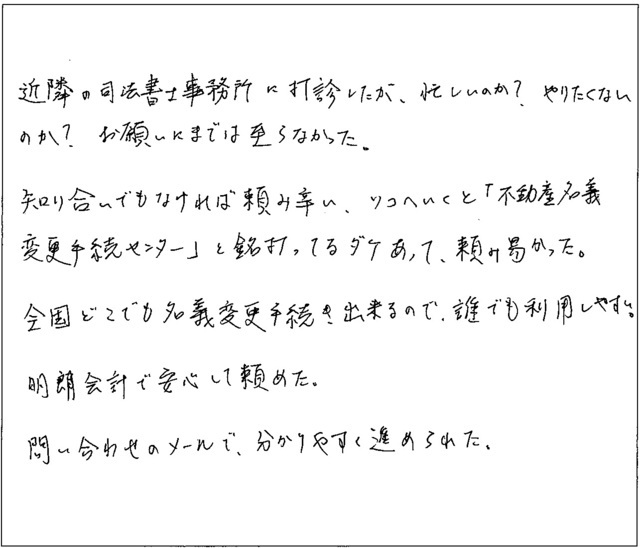 近隣の司法書士事務所に打診したが、忙しいのか？ やりたくない
のか？ お願いにまでは至らなかった。
知り合いでもなければ頼み辛い、ソコへいくと「不動産名義
変更手続センター」と銘打ってるダケあって、頼み易かった。
全国どこでも名義変更手続き出来るので、誰でも利用しやすい。
明朗会計で安心して頼めた。
問い合わせのメールで、分かりやすく進められた。